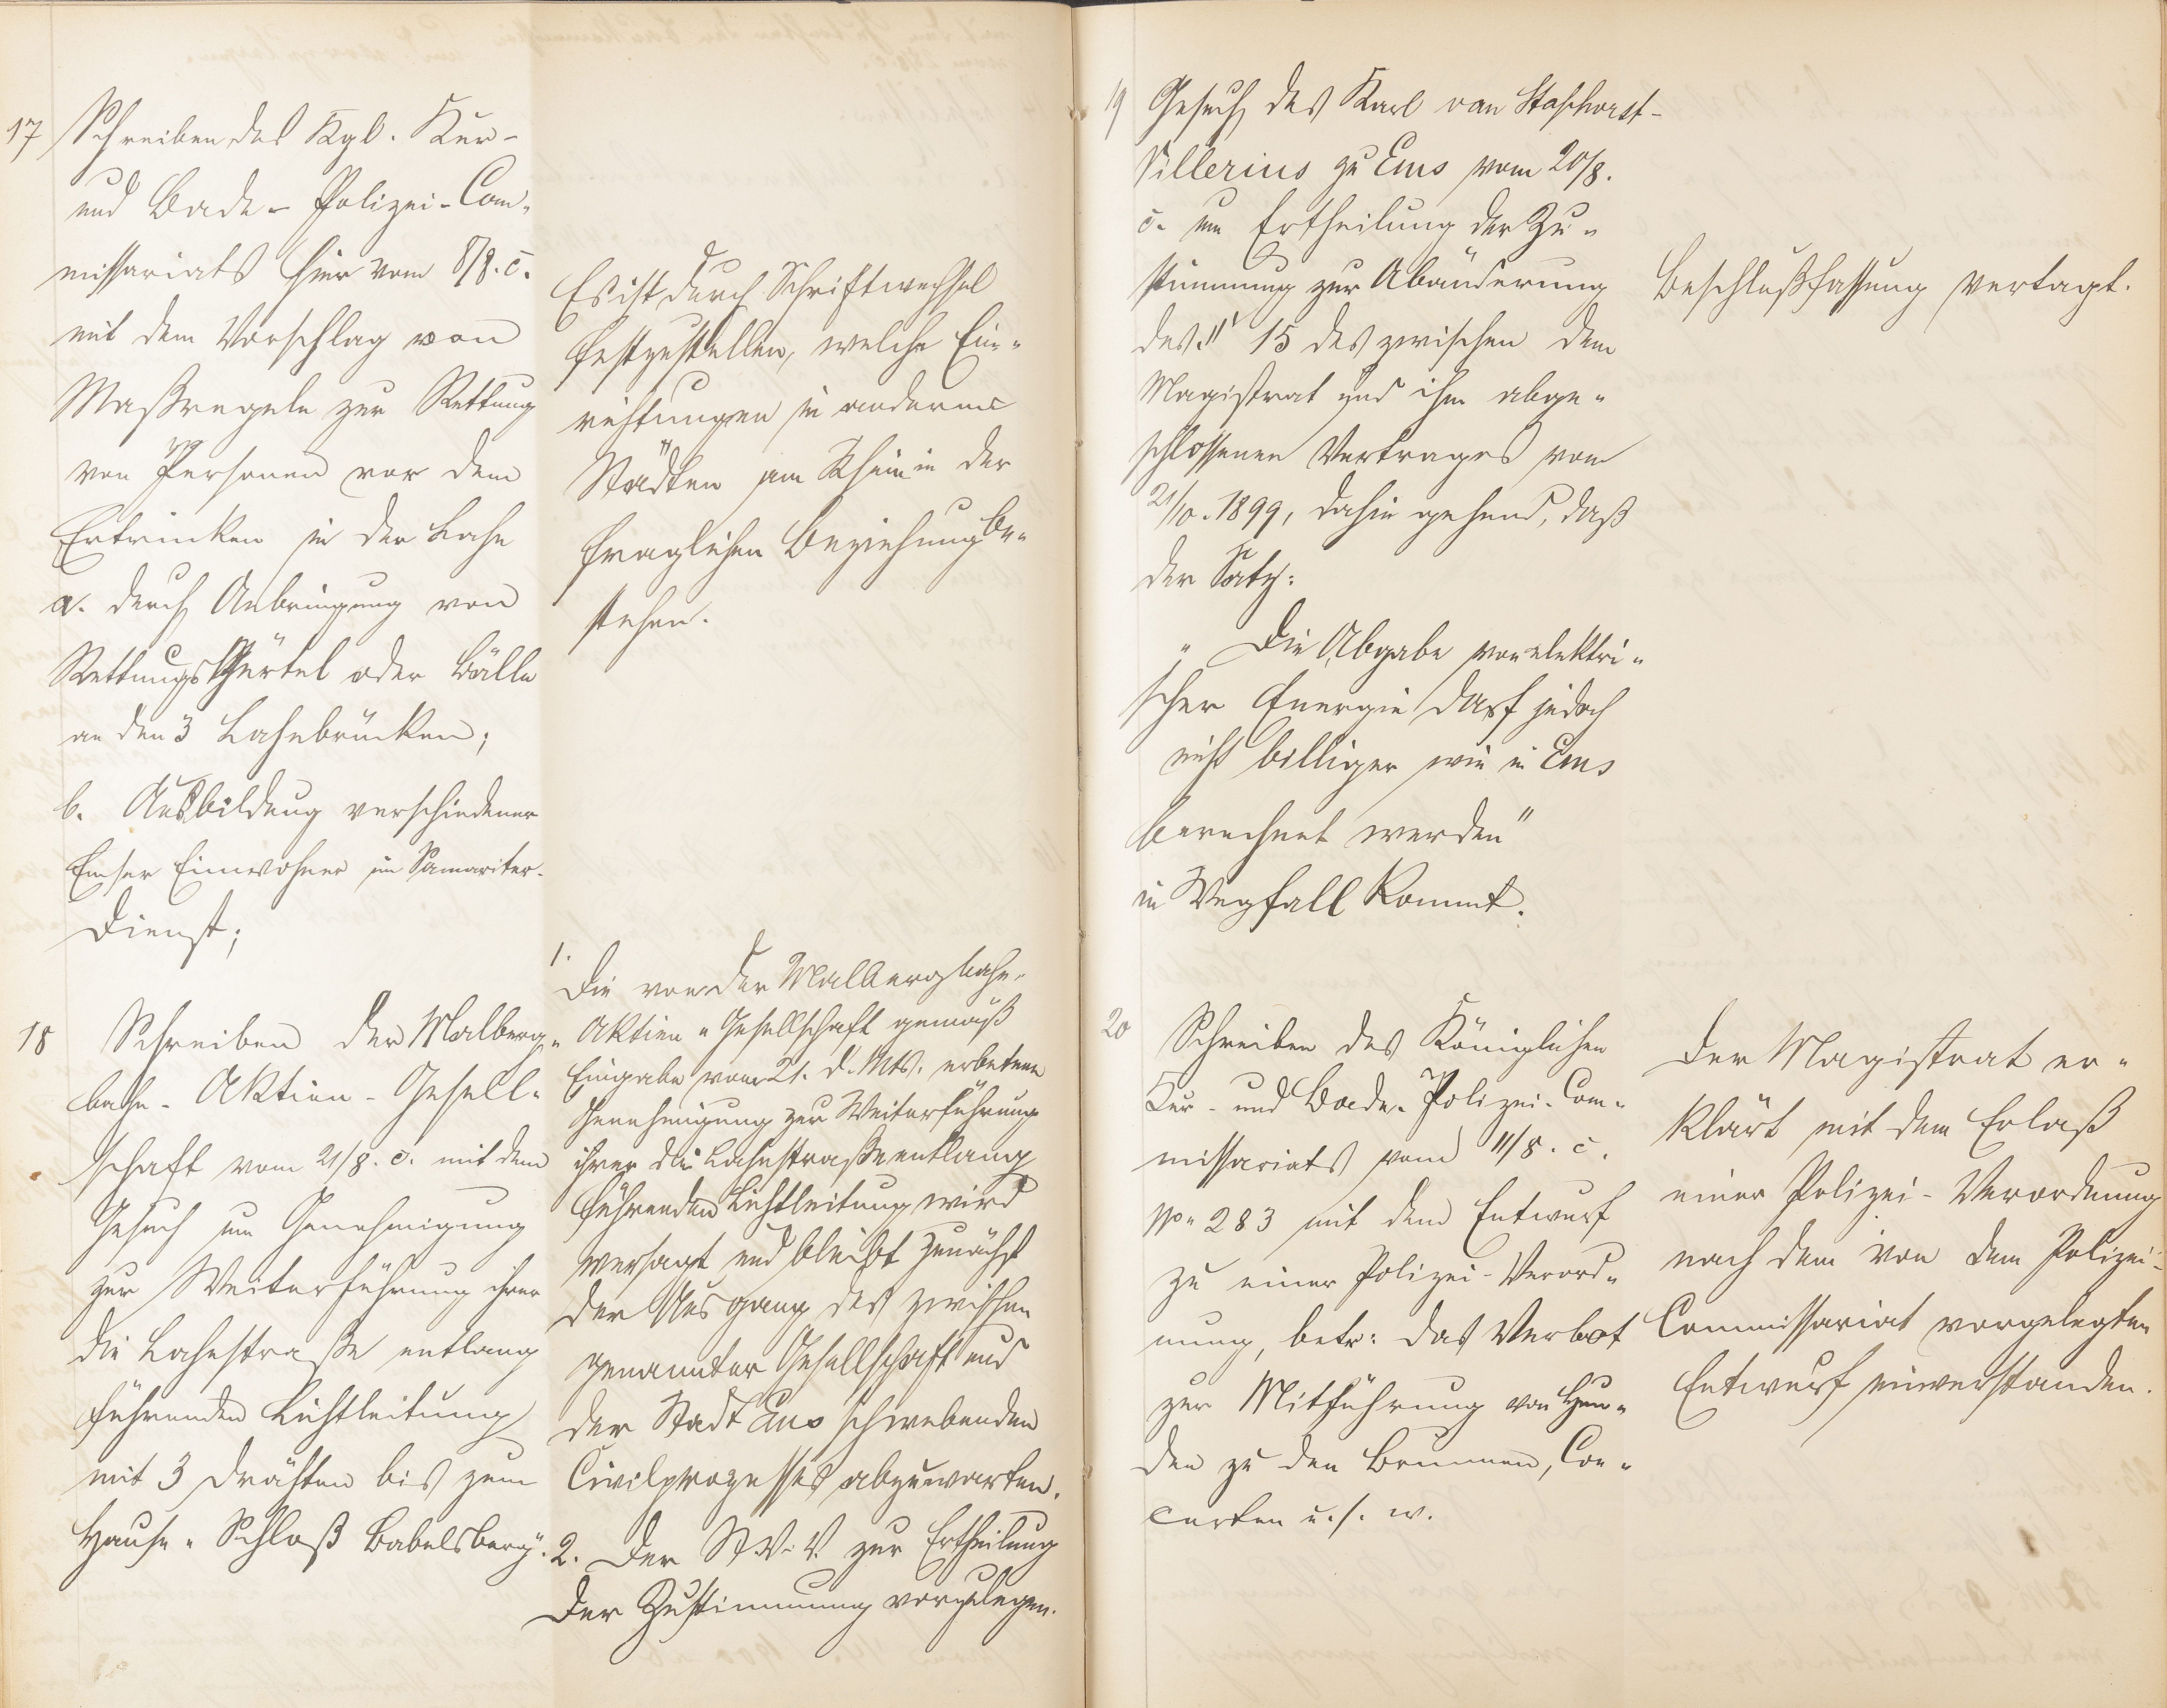 17
Schreiben des Kgl. Kur-
und Bade-Polizei-Com-
missariats hier vom 8/8. c.
mit dem Vorschlag von
Maßregeln zur Rettung
von Personen vor dem
Ertrinken in der Lahn
a. durch Anbringung von
Rettungsgürtel oder Bälle
an den 3 Lahnbrücken;
b. Ausbildung verschiedener
Emser Einwohner im Samariter-
Dienst;
Es ist durch Schriftwechsel
festzustellen, welche Ein-
richtungen in anderen
Städten am Rhein in der
fraglichen Beziehung be-
stehen.
18
Schreiben der Malberg-
bahn-Aktien-Gesell-
schaft vom 21/8. c. mit dem
Gesuch um Genehmigung
zur Weiterführung ihrer
die Lahnstraße entlang
führenden Lichtleitung
mit 3 Drähten bis zum
Hause "Schloß Babelsberg".
1.
Die von der Malbergbahn-
Aktien-Gesellschaft gemäß
Eingabe vom 21. d. Mts. erbetene
Genehmigung zur Weiterführung
ihrer die Lahnstraße entlang
führenden Lichtleitung wird
versagt und bleibt zunächst
der Ausgang des zwischen
genannter Gesellschaft und
der Stadt Ems schwebenden
Civilprozesses abzuwarten.
2. Der St. V. V. zur Ertheilung
der Zustimmung vorzulegen.
19
Gesuch des Karl van
Villerius zu Ems vom 20/8.
c. um Ertheilung der Zu-
stimmung zur Abänderung
des § 15 des zwischen dem
Magistrat und ihm abge-
schlossenen Vertrages vom
21/10. 1899, dahin gehend, daß
der Satz:
"Die Abgabe von elektri-
scher Energie darf jedoch
nicht billiger wie in Ems
berechnet werden"
in Wegfall kommt.
Beschlußfassung vertagt.
20
Schreiben des Königlichen
Kur- und Bade-Polizei-Com-
missariats vom 11/8. c.
No 283 mit dem Entwurf
zu einer Polizei-Verord-
nung, betr: das Verbot
zur Mitführung von Hun-
den zu den Brunnen, Con-
certen u. s. w.
Der Magistrat er-
klärt mit dem Erlaß
einer Polizei-Verordnung
nach dem von dem Polizei-
Commissariat vorgelegten
Entwurf einverstanden.